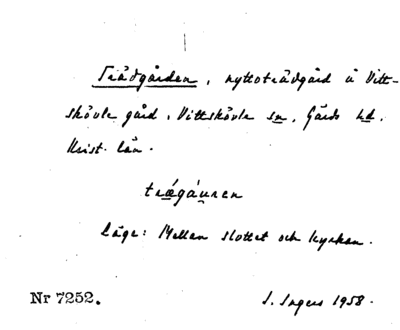 Trädgården, nyttoträdgård å Vitt-
skövle gård, Vittskövle sn, Gärds hd,
Krist. län.
trægáuren
Läge: Mellan slottet och kyrkan.
Nr 7252.
S. Ingers 1958.